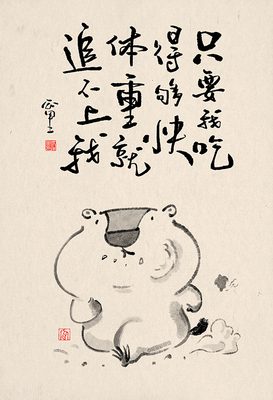 只要我吃
得够快
体重就
追不上我